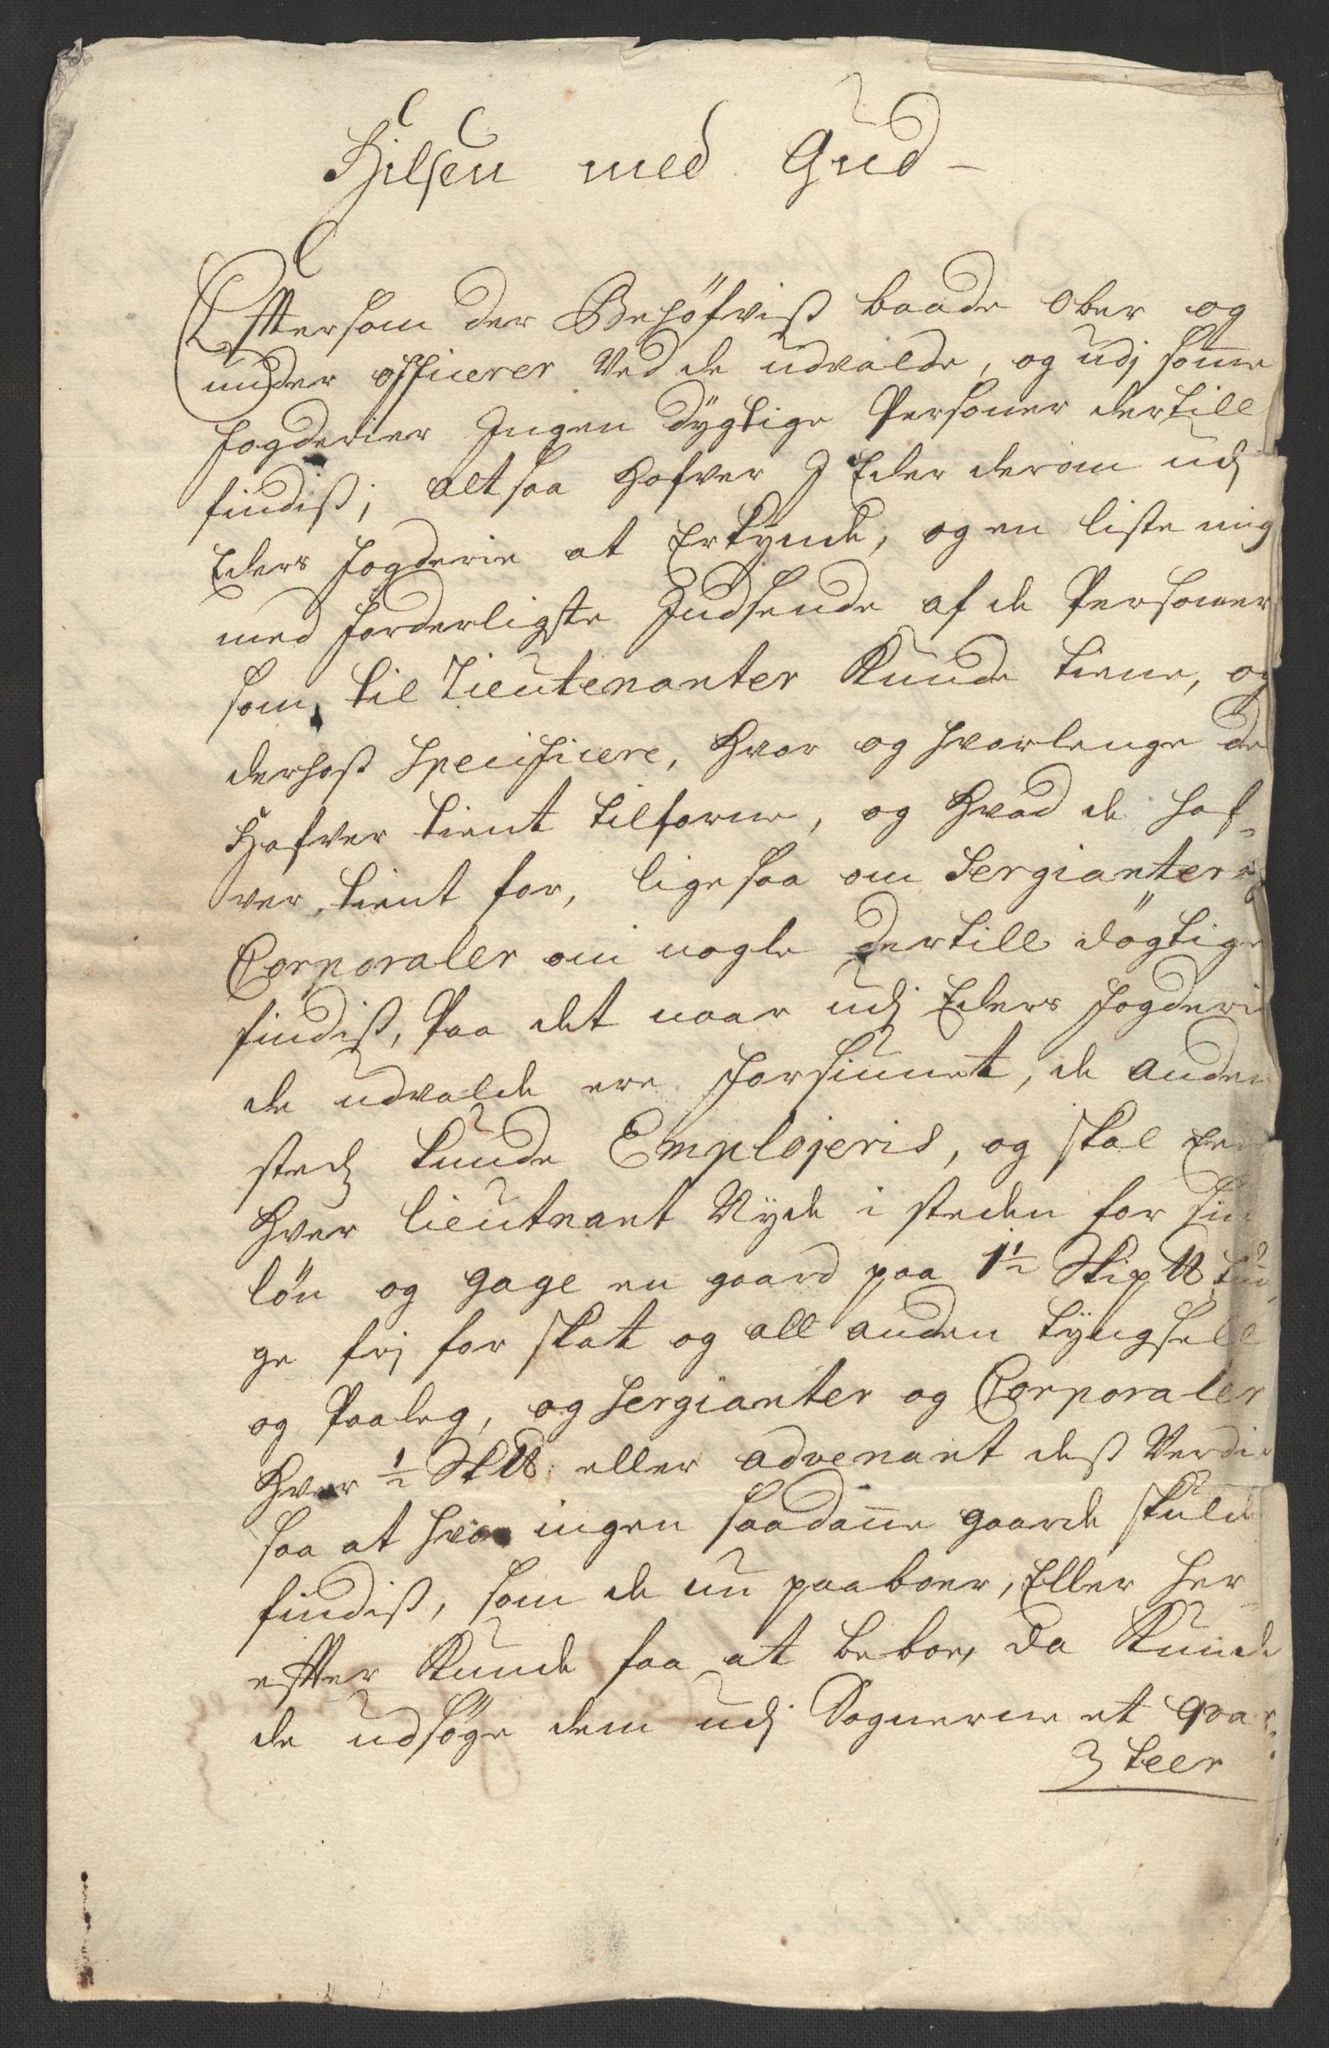 Hilsen med Gud
Eftersom der Behöfviß baade Ober og
under officerer Ved de udvalde, og udj somme
fogderier Ingen dÿgtige Personer dertill
findiß; altsaa hafver I Eder derom udj
Eders fogderie at Erkÿnde, og en liste mig
med forderligste Indsende af de Personer
som til Lieutenanter Kunde tiene, og
derhoß Specificere, hvor og hvorlenge de
hafver tient tilforne, og hvad de haf-
ver tient for, lige saa om Sergianter og
Corporaler om nogle dertill dögtige
findiß, Paa det naar udj Eders fogderi
de udvalde ere forsiunet, de anden
stedz kunde Emplojeris, og skal En
hver lieutnant Nyde i steden for sin
løn og gage en gaard paa 1½ Skip ℔ tün-
ge frj for skat og all anden tÿngsell
og Paaleg, og Sergianter og Corporaler
hver ½ Sk℔ eller advenant deß Verdie
saa at hvor ingen saadanne gaarde skulde
findiß, som de nu paaboer, Eller her-
effter Kunde faa at beboe, da Kunde
de udsöge dem udj Sognerne et qvar-
teer